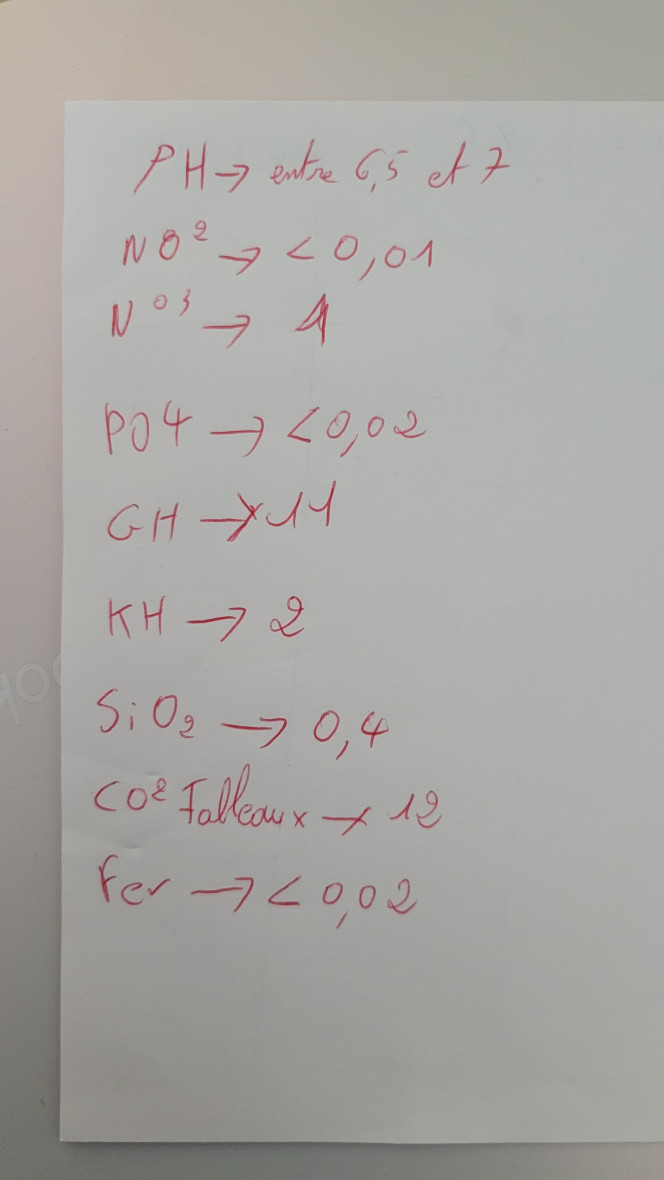 PH → entre 6,5 et 7
NO² → < 0,01
NO3 → 1
PO4 → < 0,02
GH → 11
KH → 2
SiO2 → 0,4
CO² Tableaux → 12
Fer → < 0,02